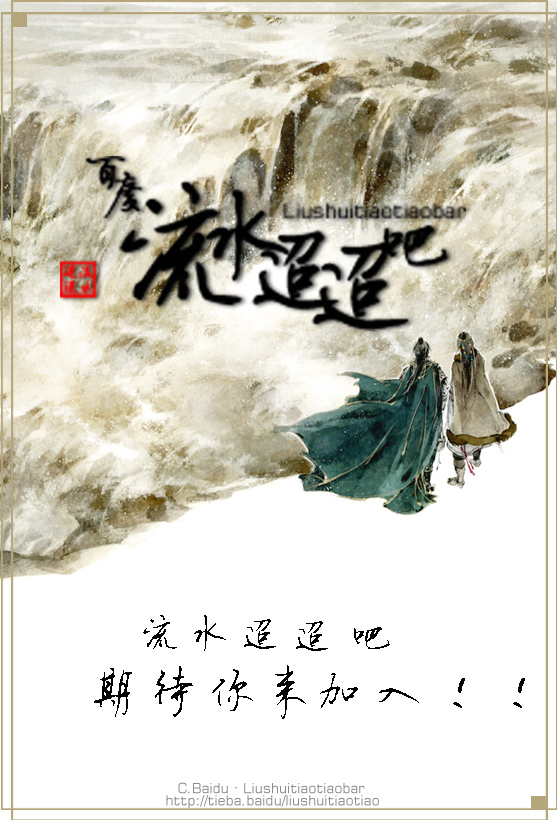 百度
流水迢迢吧
Liushuitiaotiaobar
流水迢迢吧
期待你来加入！！
C.Baidu · Liushuitiaotiaobar
http://tieba.baidu/liushuitiaotiao